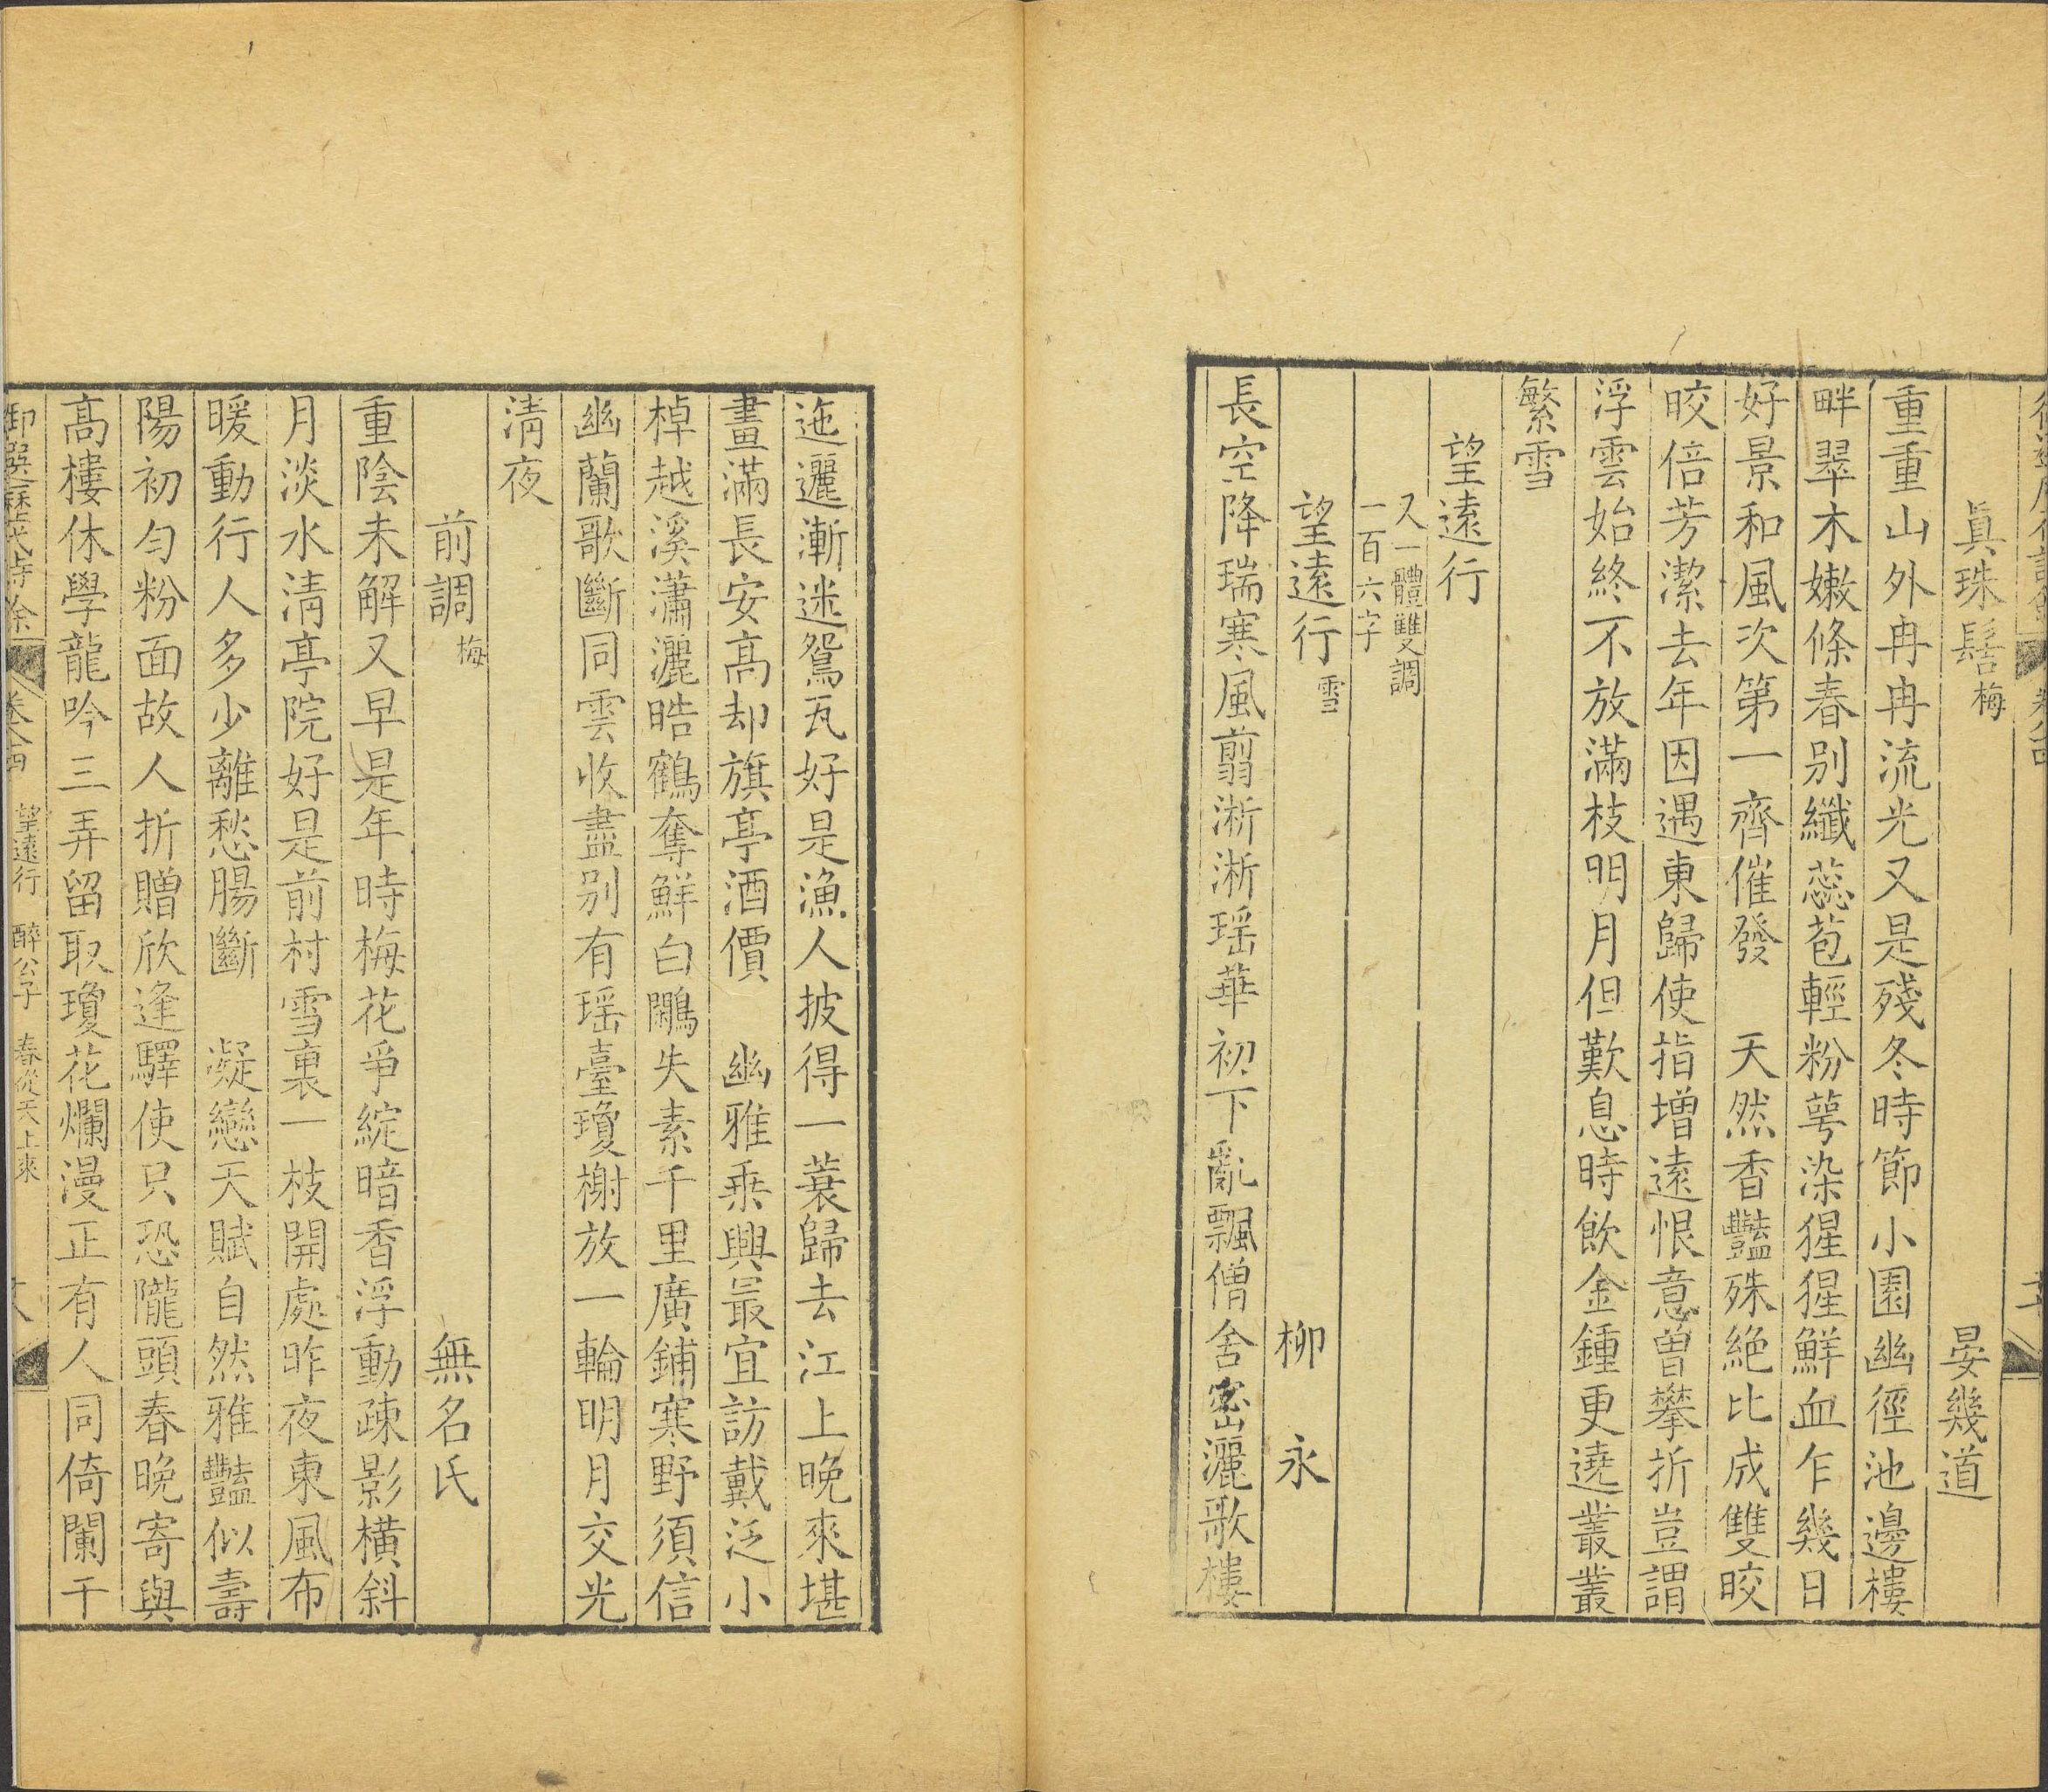 眞珠髻梅 晏幾道
重重山外冉冉流光又是殘冬時節小園幽徑池邊樓
畔翠木嫩條春别纖蕊苞輕粉萼染猩猩鮮血乍幾日
好景和風次第一齊催發 天然香豔殊絶比成雙皎
皎倍芳潔去年因遇東歸使指增遠恨意曾攀折豈謂
浮雲始終不放滿枝明月但歎息時飲金鍾更遶叢叢
繁雪
望遠行
又一體雙調
一百六字
望遠行雪 柳永
長空降瑞寒風翦淅淅瑶華初下亂飄僧舍密灑歌樓
迤邐漸迷鴛瓦好是漁人披得一蓑歸去江上晚來堪
畫滿長安高却旗亭酒價 幽雅乘興最宜訪戴泛小
棹越溪瀟灑皓鶴奪鮮白鷴失素千里廣鋪寒野須信
幽蘭歌斷同雲收盡别有瑶臺瓊榭放一輪明月交光
淸夜
前調梅 無名氏
重陰未解又早是年時梅花爭綻暗香浮動疎影橫斜
月淡水淸亭院好是前村雪裏一枝開處昨夜東風布
暖動行人多少離愁腸斷 凝戀天賦自然雅豔似壽
陽初勻粉面故人折贈欣逢驛使只恐隴頭春晚寄與
高樓休學龍吟三弄留取瓊花爛漫正有人同倚闌干
御選歷代詩餘 卷八十四 望遠行 醉公子 春從天上來